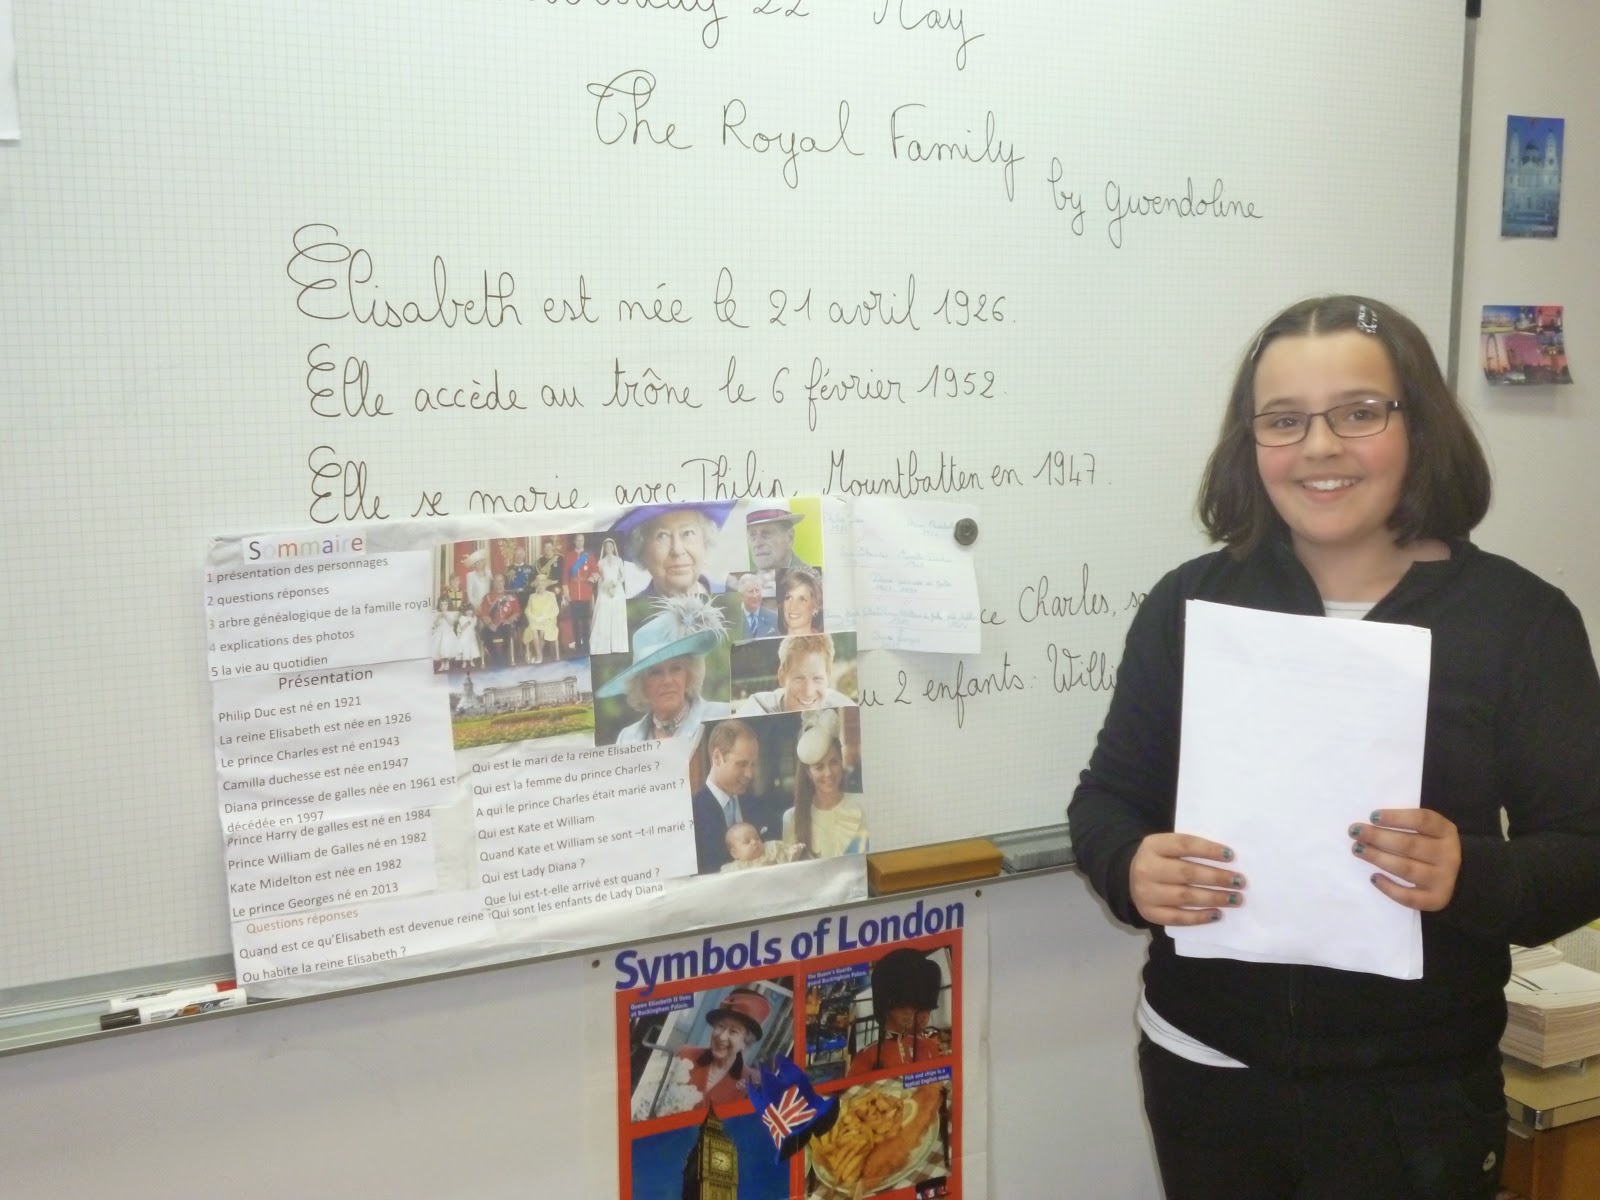 22 May
The Royal Family
by Gwendoline
Elisabeth est née le 21 avril 1926.
Elle accède au trône le 6 février 1952.
Elle se marie avec Philip Mountbatten en 1947.
Charles,
2 enfants:
Sommaire
1 présentation des personnages
2 questions réponses
3 arbre généalogique de la famille royal
4 explications des photos
5 la vie au quotidien
Présentation
Philip Duc est né en 1921
La reine Elisabeth est née en 1926
Le prince Charles est né en1943
Camilla duchesse est née en1947
Diana princesse de galles née en 1961 est
décédée en 1997
Prince Harry de galles est né en 1984
Prince William de Galles né en 1982
Kate Midelton est née en 1982
Le prince Georges né en 2013
Questions réponses
Quand est ce qu'Elisabeth est devenue reine
Ou habite la reine Elisabeth ?
Qui est le mari de la reine Elisabeth ?
Qui est la femme du prince Charles ?
A qui le prince Charles était marié avant ?
Qui est Kate et William
Quand Kate et William se sont –t-il marié ?
Qui est Lady Diana ?
Que lui est-t-elle arrivé est quand ?
Qui sont les enfants de Lady Diana
Symbols of London
Queen Elizabeth II lives
at Buckingham Palace.
The Queen's Guards
guard Buckingham Palace.
Fish and chips is a
typical English meal.
LONDON